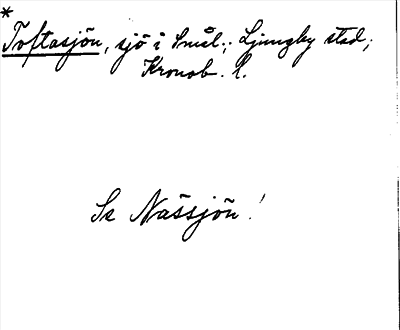 *
Toftasjön, sjö i Smål.; Ljungby stad;
Kronob. l.
Se Nässjön!